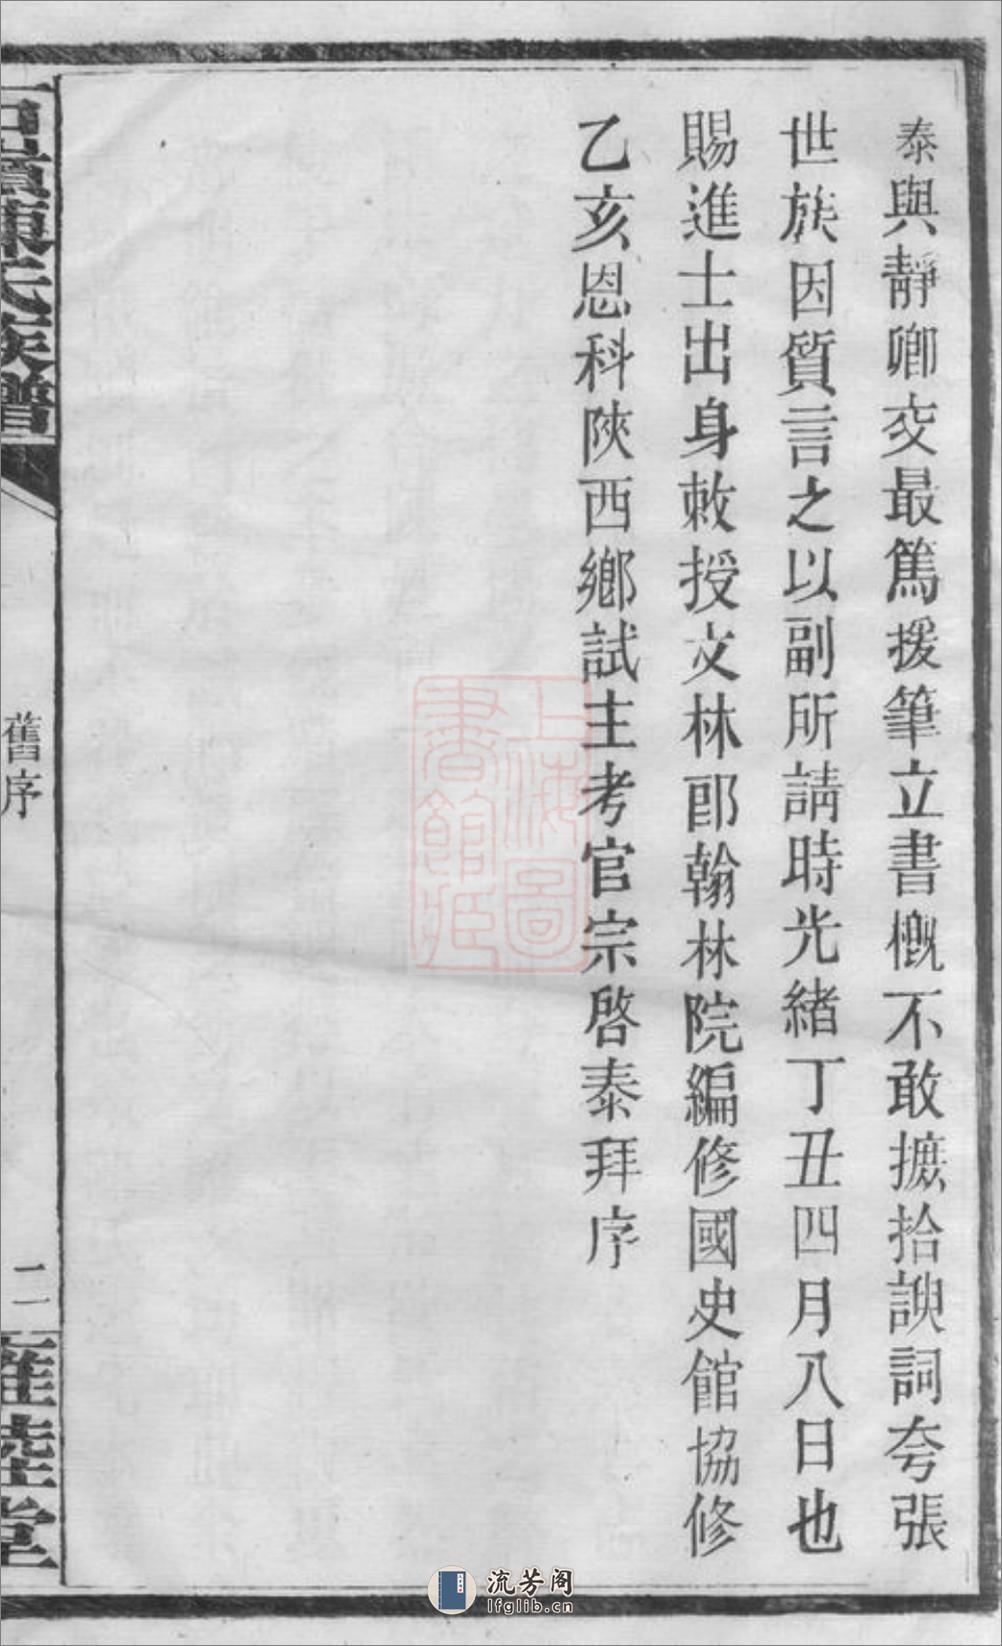 泰與靜卿交最篤援筆立書概不敢摭拾諛詞夸張
世族因質言之以副所請時光緒丁丑四月八日也
賜進士出身敕授文林郎翰林院編修國史館協修
乙亥恩科陝西鄉試主考官宗啓泰拜序
陳氏族譜
舊序
二
雍睦堂
上海圖書館藏
流芳阁
lfglib.cn